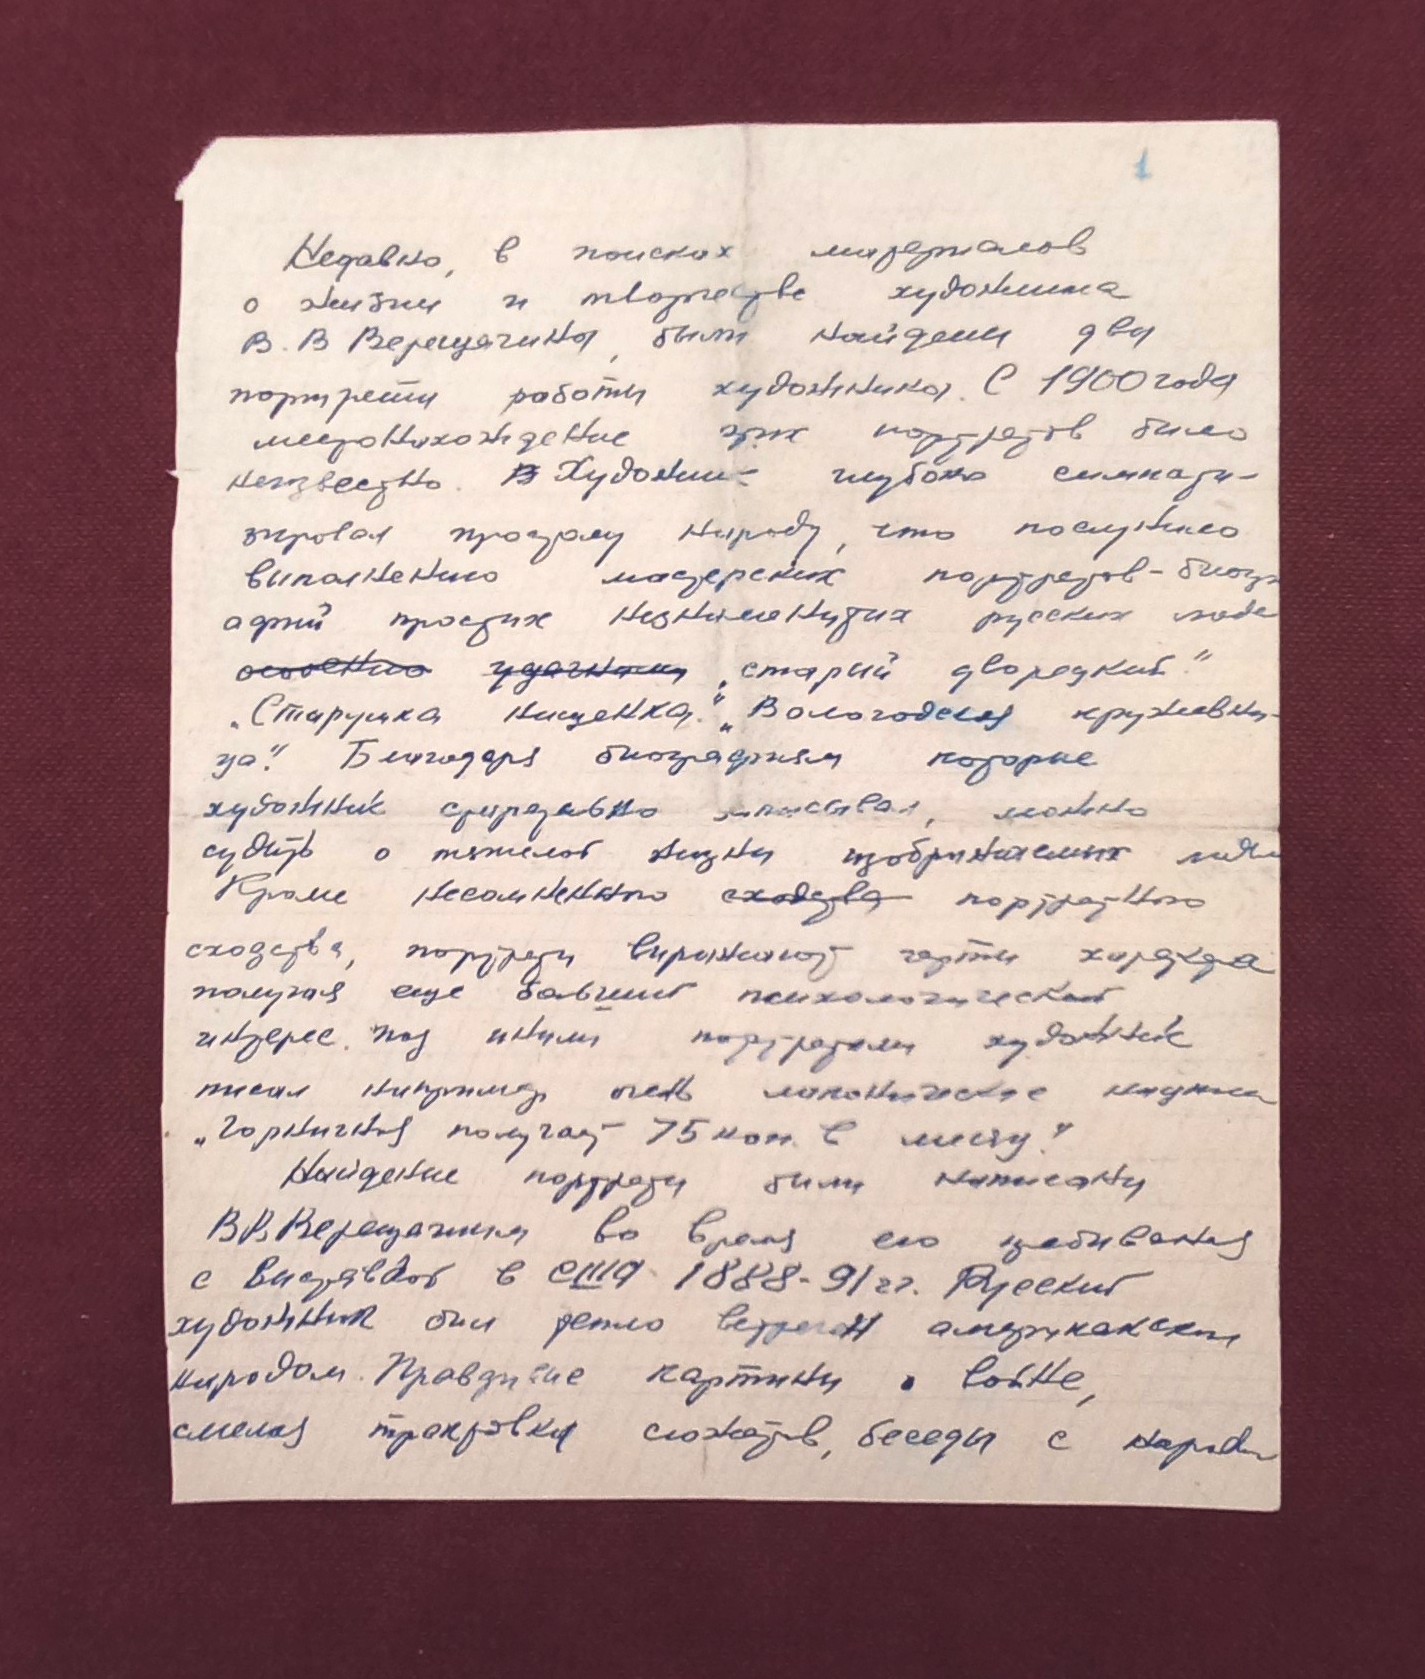 1
Недавно, в поисках материалов
о жизни и творчестве художника
В.В Верещагина, были найдены два
портреты работы художника. С 1900 года
местонахождение этих портретов было
неизвестно. В Художник глубоко симпати-
зировал простому народу, что послужило
выполнению мастерских портретов-биогр
афий простых незнаменитых русских люде
особенно удачными „старый дворецкий“
„Старушка нищенка.“ „Вологодская кружевни-
ца“. Благодаря биографиям которые
художник старательно записывал, можно
судить о тяжелой жизни изображаемых людей
Кроме несомненного сходства портретного
сходства, портреты выражают черты характера
получая еще больший психологический
интерес. Под иными портретами художник
писал например очень лаконические надписи
„Горничная получает 75 коп. в месяц.“
Найденые портреты были написаны
В.В.Верещагиным во время его пребывания
с выставкой в США 1888-91 гг. Русский
художник был тепло встречен американским
народом. Правдивые картины о войне,
смелая трактовка сюжетов, беседы с народом